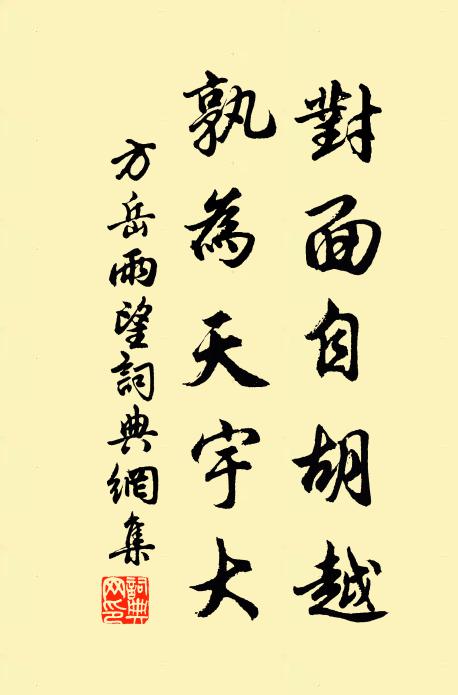 對面自胡越
孰為天宇大
方岳雨望詞典網集
詞典網印